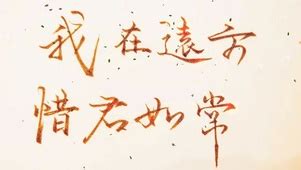 我在遠方
惜君如常